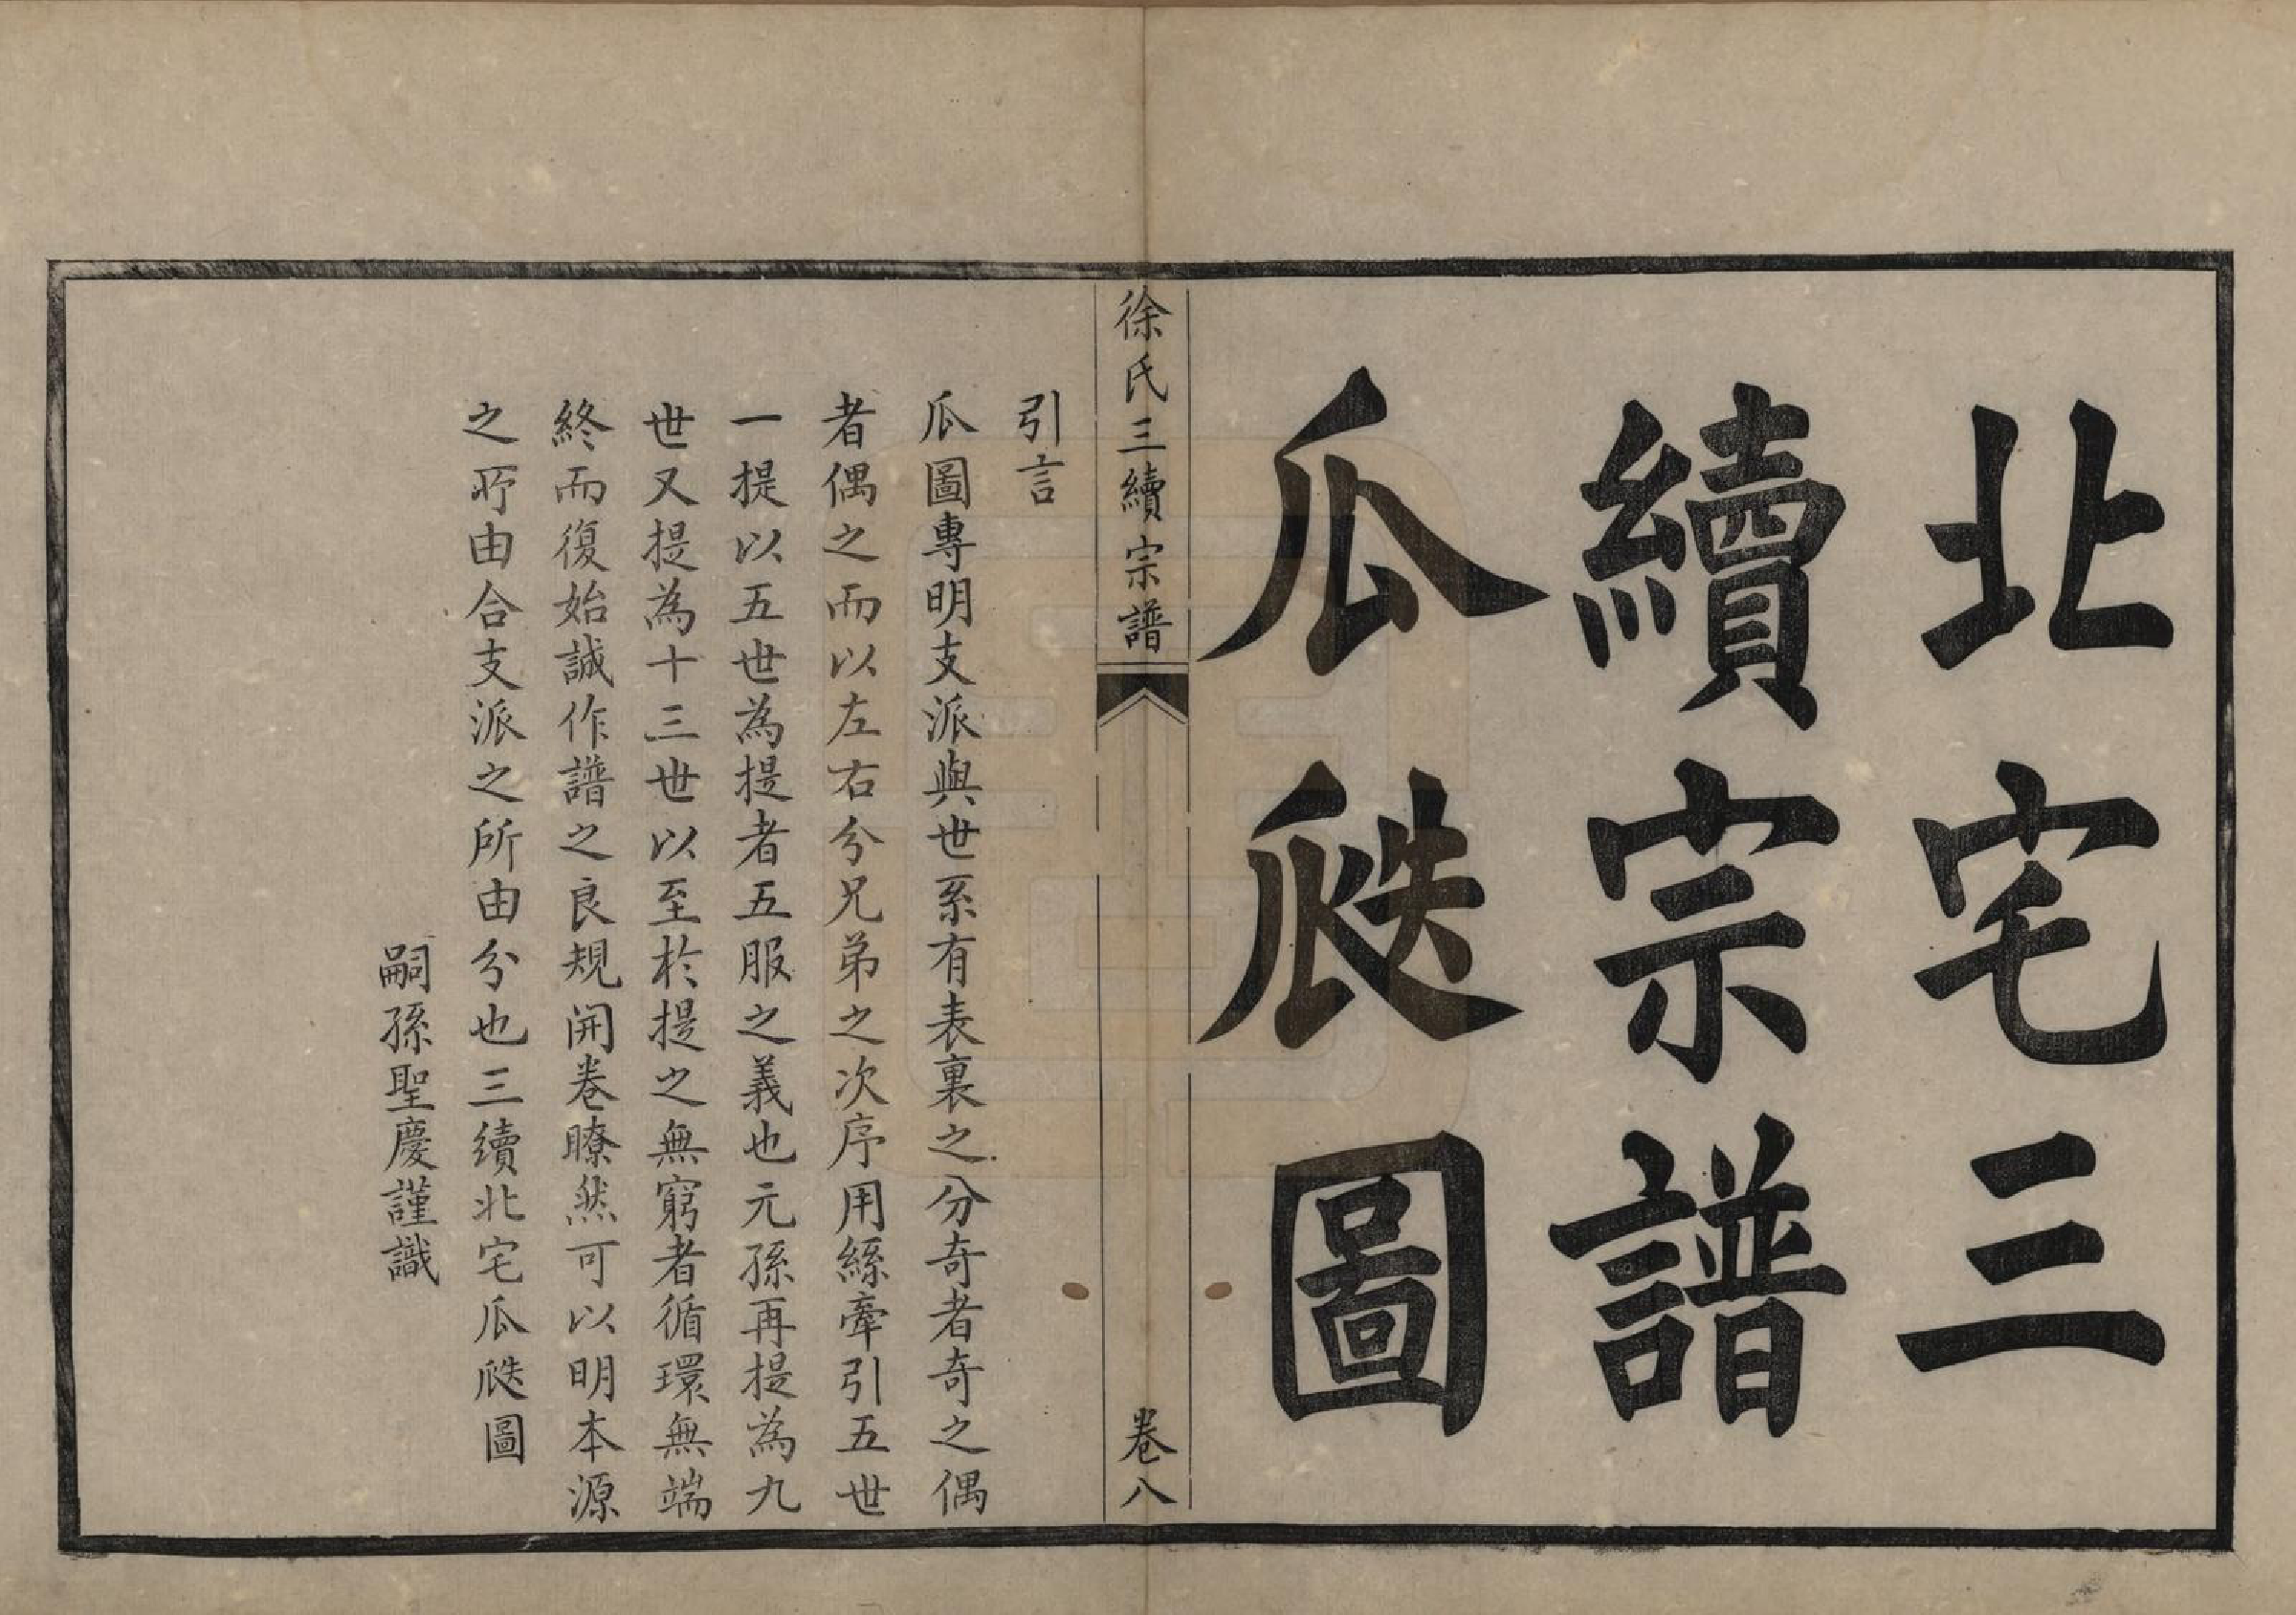 北宅三
續宗譜
瓜瓞圖
徐氏三續宗譜
卷八
引言
瓜圖專明支派與世系有表裏之分奇者奇之偶
者偶之而以左右分兄弟之次序用絲牽引五世
一提以五世為提者五服之義也元孫再提為九
世又提為十三世以至於提之無窮者循環無端
終而復始誠作譜之良規開卷瞭然可以明本源
之所由合支派之所由分也三續北宅瓜瓞圖
嗣孫聖慶謹識